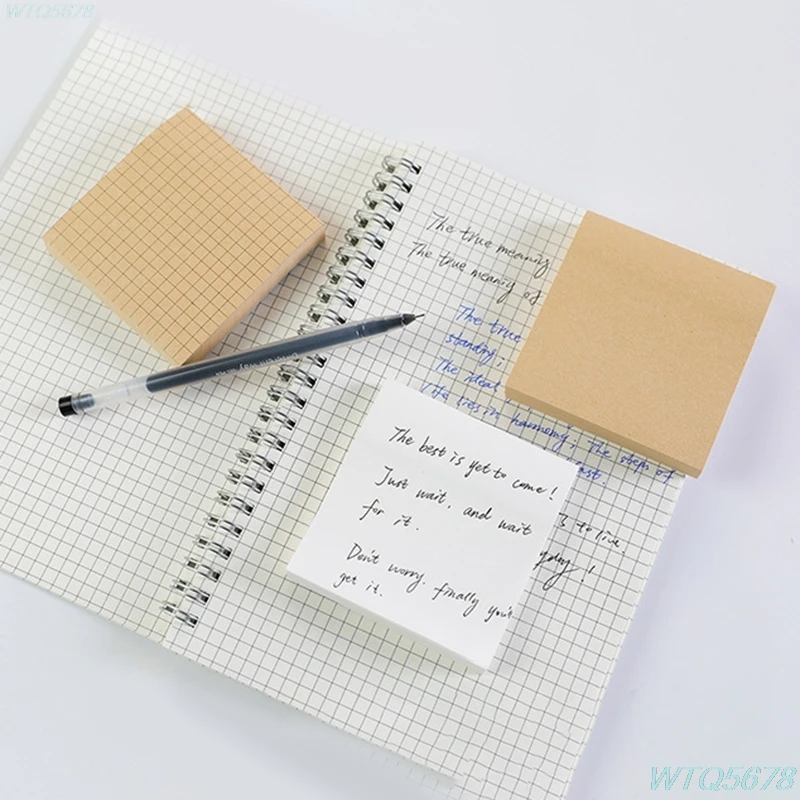 WTQ5678
The true meaning
The true meaning of
The true
standing,
The ideal
life lies in harmony; the steps of
The best is yet to come!
Just wait, and wait
for it.
Don't worry. finally you'll
get it.
to live.
WTQ5678